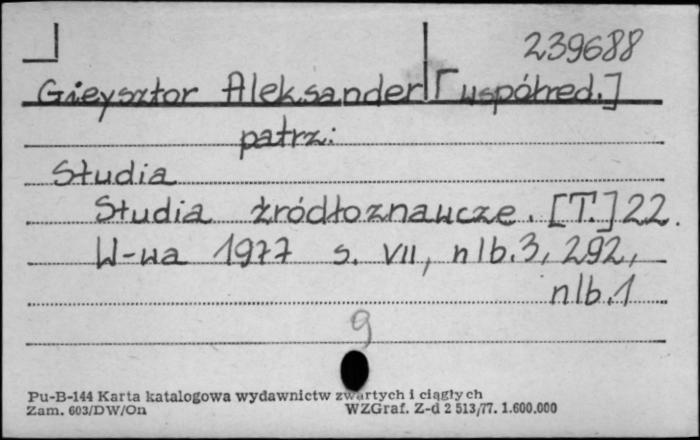 239688
Gieysztor Aleksander [współred.]
patrz:
Studia
Studia źródłoznawcze. [T.] 22.
W-wa 1977 s. VII, nlb. 3, 292,
nlb. 1
9
Pu-B-144 Karta katalogowa wydawnictw zwartych i ciągłych
Zam. 603/DW/On WZGraf. Z-d 2 513/77. 1.600.000